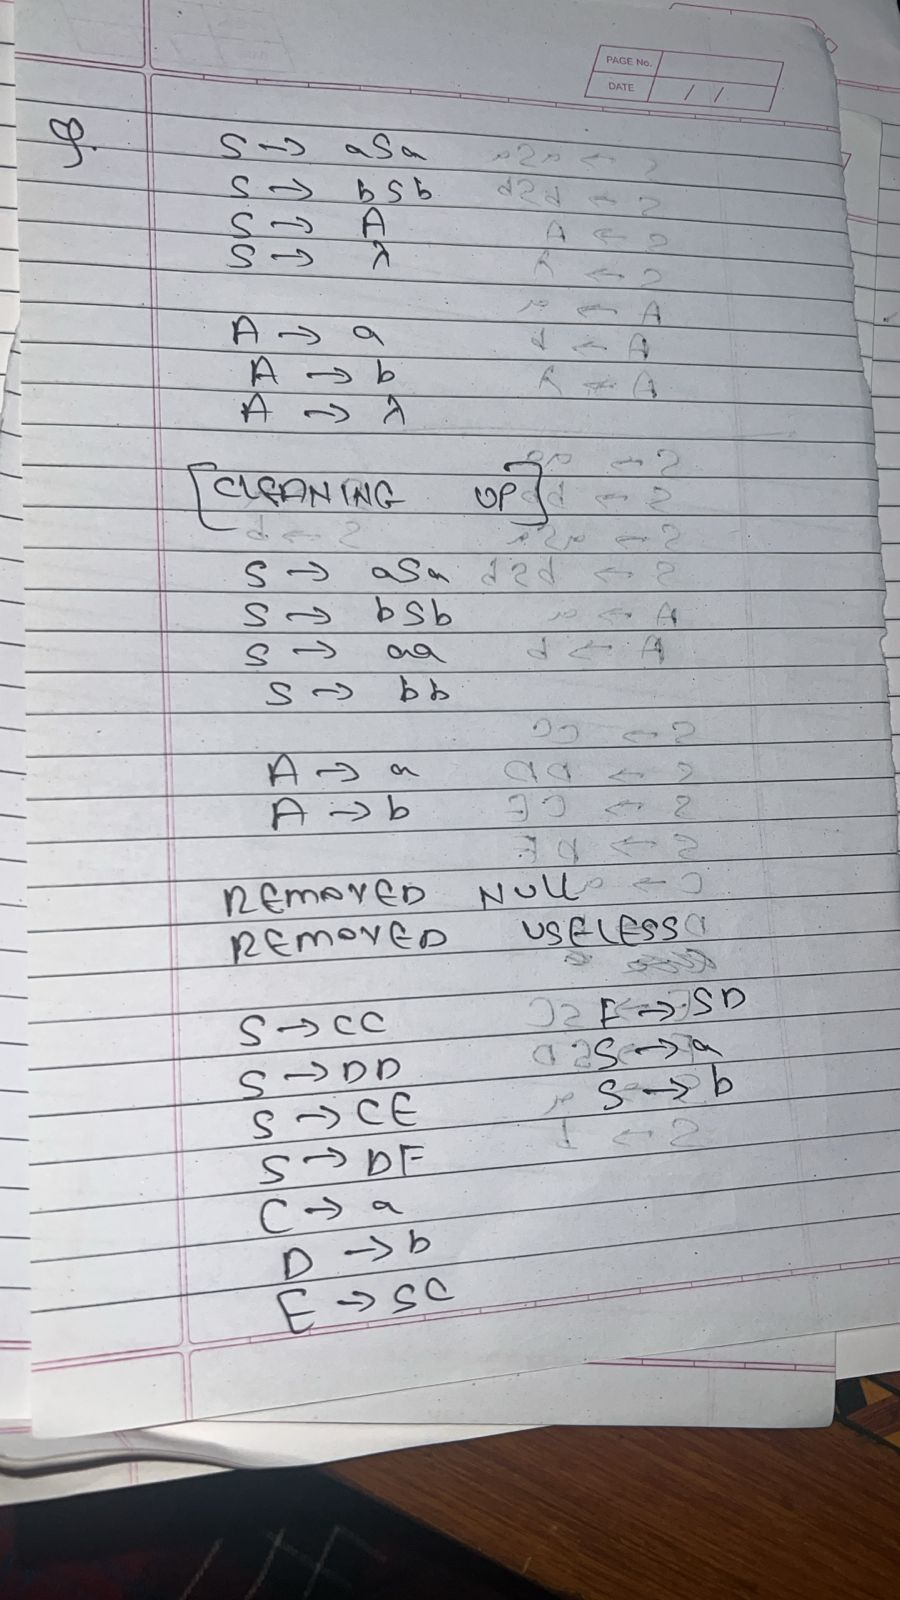 PAGE No.
DATE / /
Q.
S → aSa
S → bSb
S → A
S → λ
A → a
A → b
A → λ
[CLEANING UP]
S → aSa
S → bSb
S → aa
S → bb
A → a
A → b
REMOVED NULL
REMOVED USELESS
S → CC
S → DD
S → CE
S → DF
C → a
D → b
E → SC
F → SD
S → a
S → b